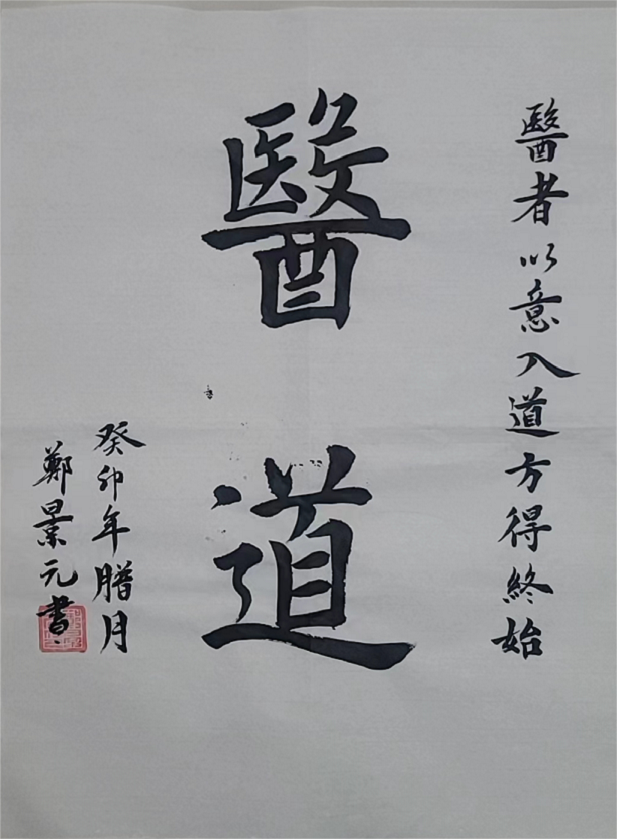 醫者以意入道方得終始
醫道
癸卯年腊月
鄭景元書